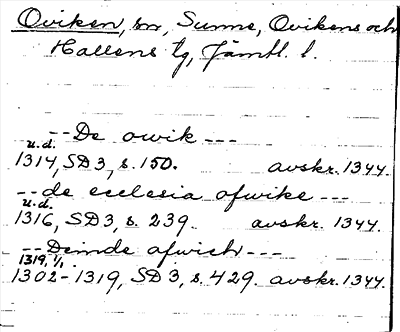 Oviken, sn, Sunne, Ovikens och
Hallens tg, Jämtl. l.
--De owik---
u.d.
1314, SD3, s. 150. avskr. 1344.
--de ecclesia ofwike---
u.d.
1316, SD3, s. 239. avskr. 1344.
--Deinde afwich---
1319, 1/1
1302-1319, SD3, s. 429. avskr. 1344.